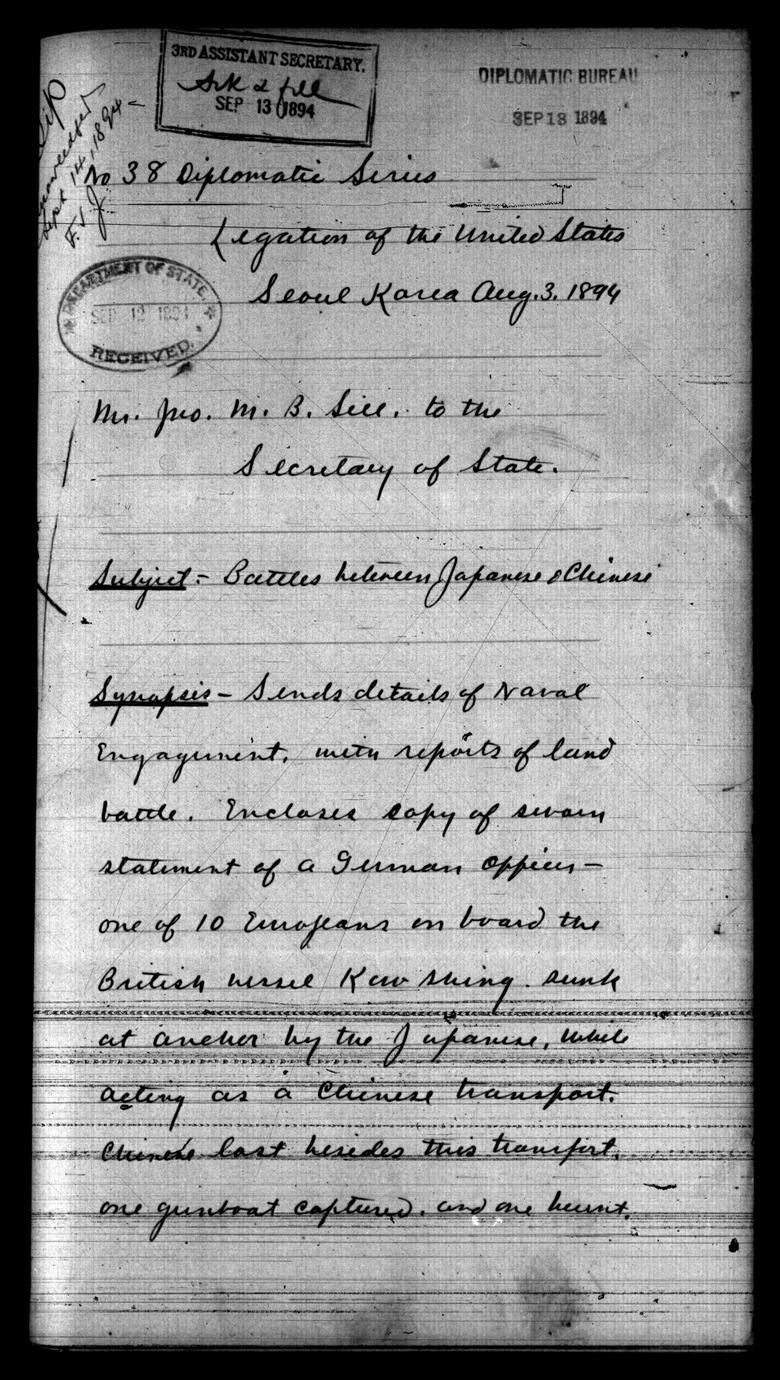 3RD ASSISTANT SECRETARY.
Ack & file
SEP 13 1894
DIPLOMATIC BUREAU
SEP 18 1894
Sept 14, 1894
No 38 Diplomatic Series
Legation of the United States
Seoul Korea Aug. 3. 1894
DEPARTMENT OF STATE
SEP 12 1894
RECEIVED.
Mr. Jno. M. B. Sill. to the
Secretary of State.
Subject:- Battles between Japanese & Chinese
Synopsis - Sends details of Naval
Engagement, with reports of land
battle. Encloses copy of sworn
statement of a German Officer -
one of 10 Europeans on board the
British vessel Kow Shing. sunk
at anchor by the Japanese, while
acting as a Chinese transport.
Chinese lost besides this transport,
one gunboat captured. and one burnt.